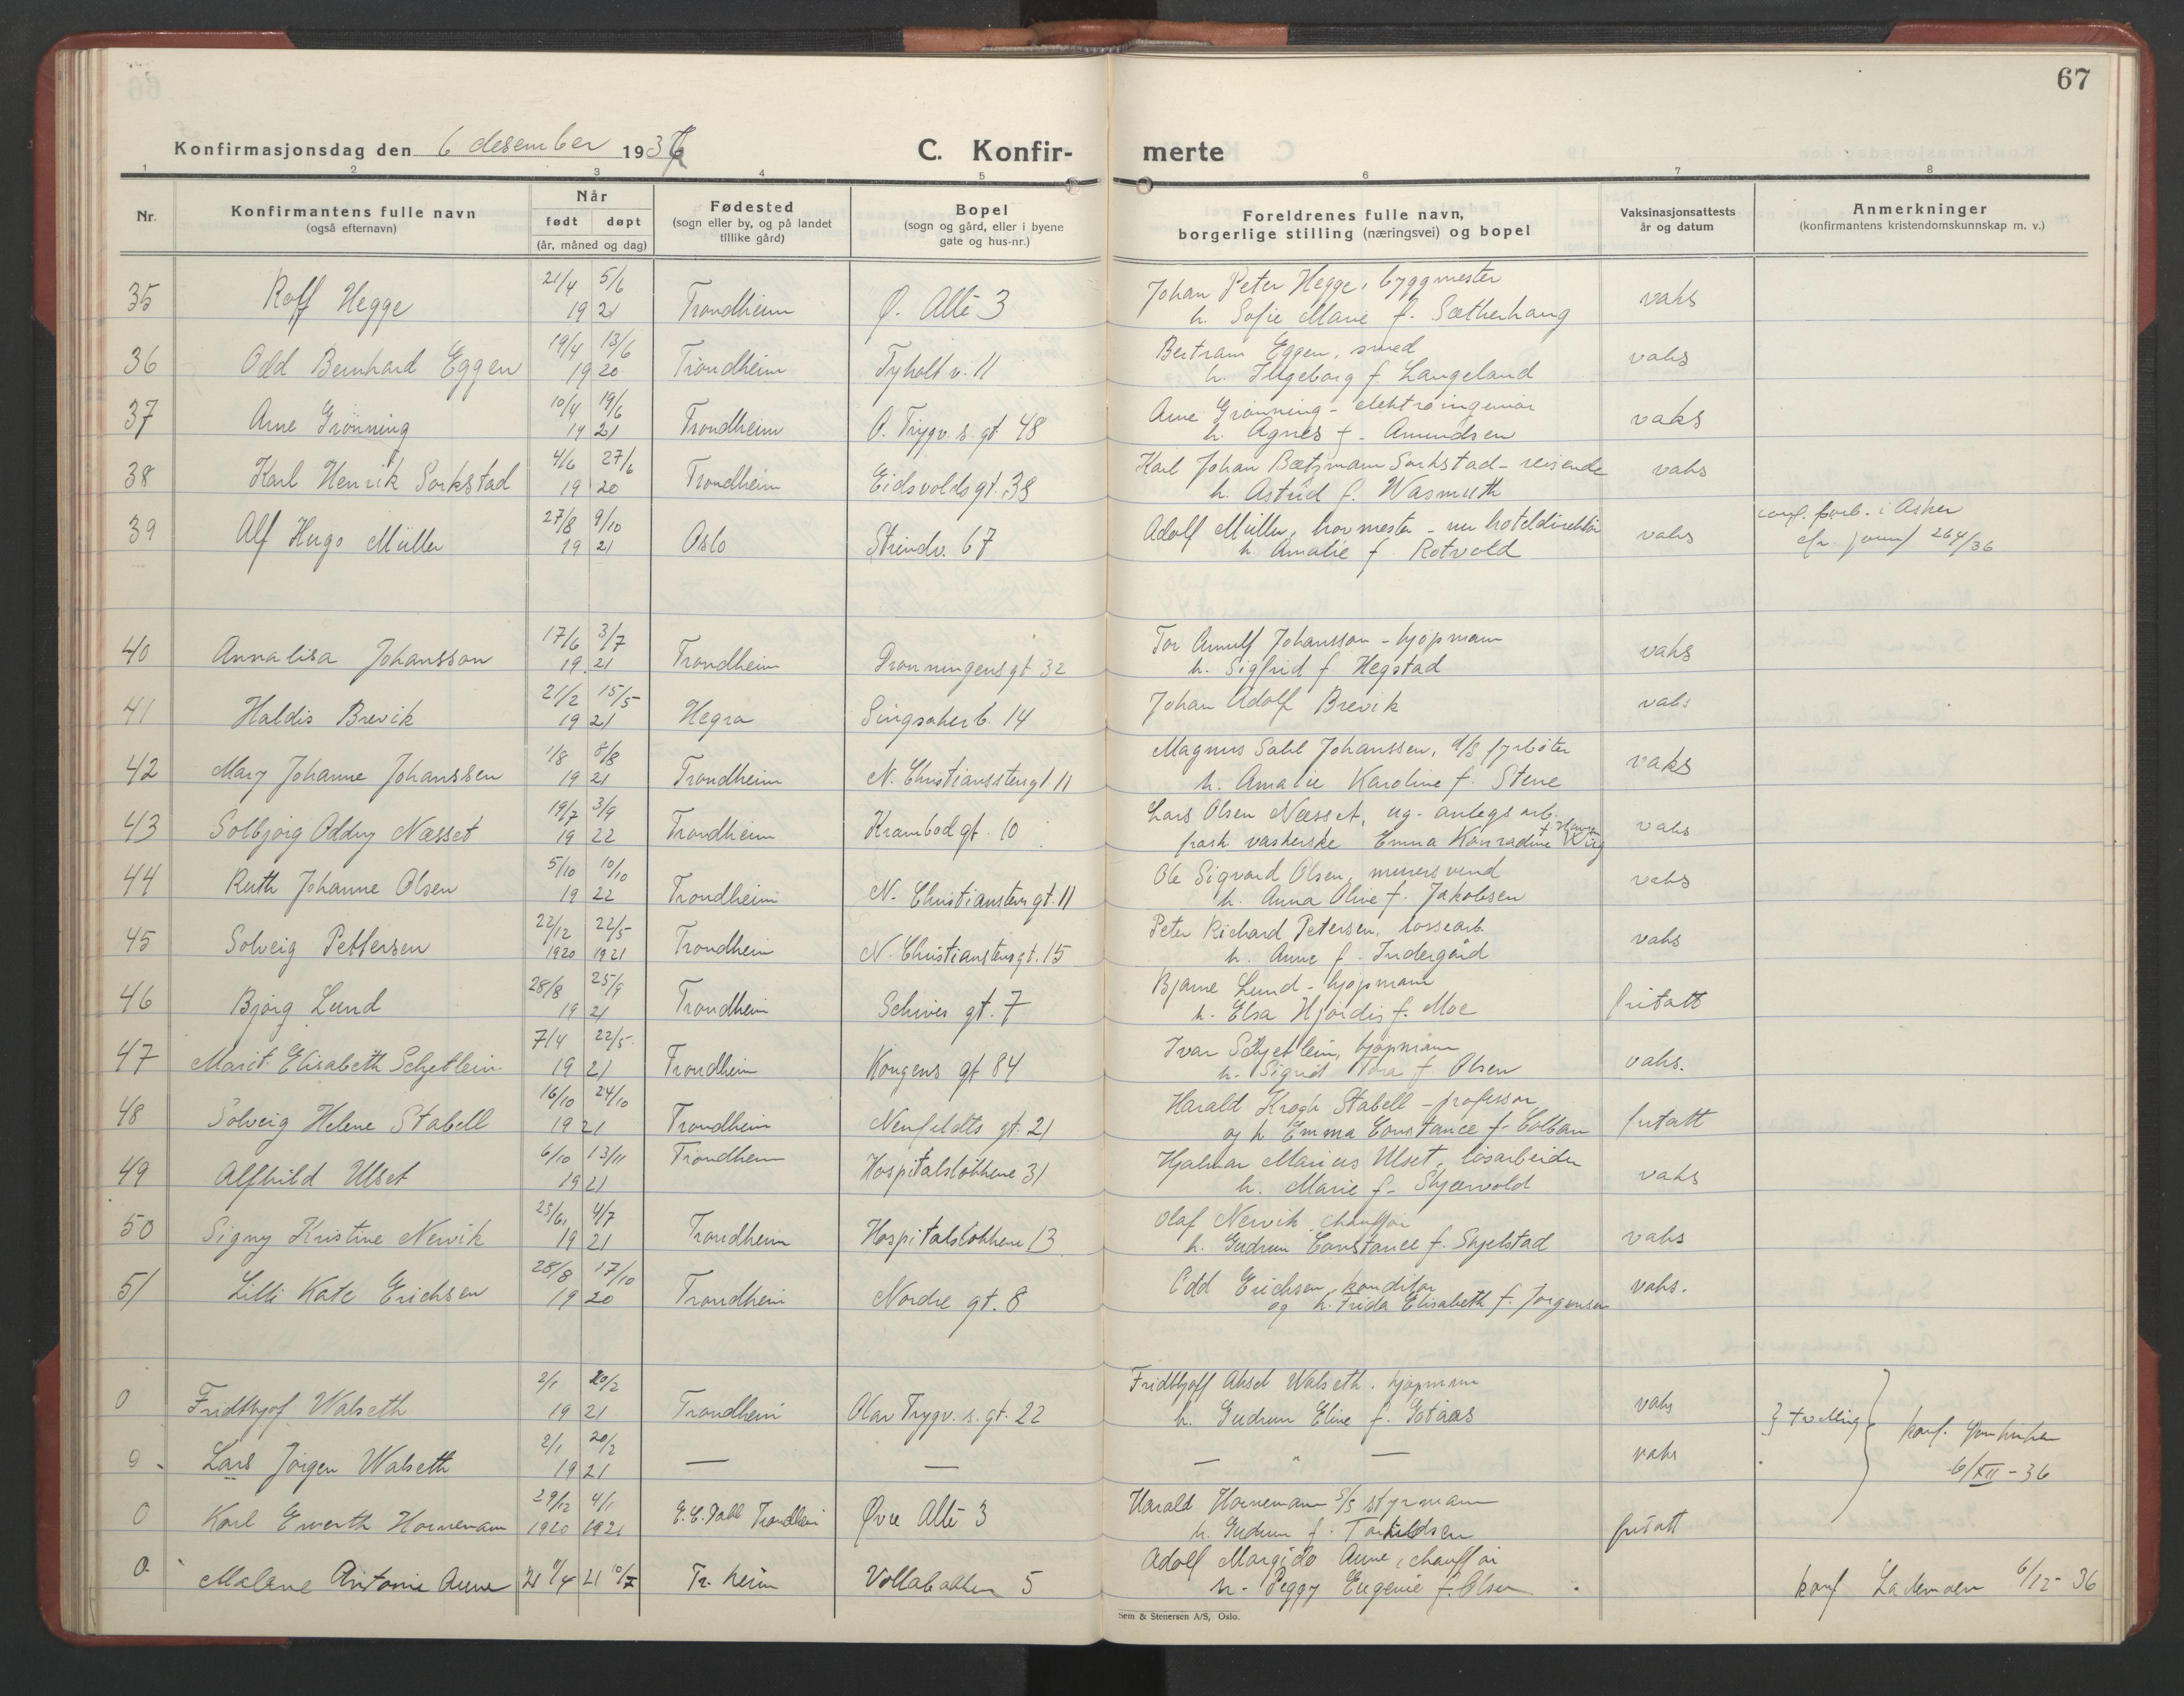 67
Konfirmasjonsdag den 6 desember 1936
C. Konfir- merte
1 2 3 4 5 6 7 8
Nr.
Konfirmantens fulle navn
(også efternavn)
Når
født døpt
(år, måned og dag)
Fødested
(sogn eller by, og på landet
tillike gård)
Bopel
(sogn og gård, eller i byene
gate og hus-nr.)
Foreldrenes fulle navn,
borgerlige stilling (næringsvei) og bopel
Vaksinasjonsattests
år og datum
Anmerkninger
(konfirmantens kristendomskunnskap m. v.)
35 Rolf Hegge 21/4 5/6 19 21 Trondheim Ø. Allè 3 Johan Peter Hegge, byggmester vaks
h. Sofie Marie f. Sætherhaug
36 Odd Bernhard Eggen 19/4 13/6 19 20 Trondheim Tyholtv. 11 Bertram Eggen, smed vaks
h. Ingeborg f. Langeland
37 Arne Grönning 10/4 19/6 19 21 Trondheim O. Trygv. s. gt 48 Arne Grønning - elektroingeniør vaks
h. Agnes f. Amundsen
38 Karl Henrik Sorkstad 4/6 27/6 19 20 Trondheim Eidsvoldsgt. 38 Karl Johan Bætzmann Sorkstad - reisende vaks
h. Astrid f. Wasmuth
39 Alf Hugo Müller 27/8 9/10 19 21 Oslo Strindv. 67 Adolf Müller, hovmester - nu hoteldirektør vaks konf. forb. i Asker
h. Amalie f. Rotvold cfr. journ 264/36
40 Annalisa Johansson 17/6 3/7 19 21 Trondheim Dronningensgt 32 Tor Arnulf Johansson - kjøpmann vaks
h. Sigfrid f Hegstad
41 Haldis Brevik 21/2 15/5 19 21 Hegra Singsakerb. 14 Johan Adolf Brevik vaks
42 Mary Johanne Johanssen 1/8 8/8 19 21 Trondheim N. Christianstensgt 11 Magnus Johanssen, d/s fyrbøter vaks
h. Amalie Karoline f. Stene
43 Solbjørg Oddny Næsset 19/7 3/9 19 22 Trondheim Krambodgt. 10 Lars Olsen Næsset, ug. anlegsarb. vaks
frask. vaskerske Emma Konradine
44 Ruth Johanne Olsen 5/10 10/10 19 22 Trondheim N. Christianstensgt. 11 Ole Sigvard Olsen, murersvend vaks
h. Anna Olive f. Jakobsen
45 Solveig Pettersen 22/12 22/5 1920 1921 Trondheim N. Christianstensgt. 15 Peter Richard Petersen, lossearb. vaks
h. Anne f. Indergård
46 Bjørg Lund 28/8 25/9 19 21 Trondheim Schives gt. 7 Bjarne Lund - kjøpmann fritatt
h. Elsa Hjørdis f. Moe
47 Marit Elisabeth Schjetlein 7/4 22/5 19 21 Trondheim Kongens gt 84 Ivar Schjetlein, kjøpmann vaks.
h. Sigrid Tora f Olsen
48 Solveig Helene Stabell 16/10 24/10 19 21 Trondheim Neufeldts gt. 21 Harald Krogh Stabell - professor fritatt
og h Emma Constance f. Colban
49 Alfhild Ulset 6/10 13/11 19 21 Trondheim Hospitalsløkkene 31 Hjalmar Marius Ulset, løsarbeider vaks
h. Marie f. Skjærvold
50 Signy Kristine Nervik 25/6 4/7 19 21 Trondheim Hospitalsløkkene 13 Olaf Nervik chauffør vaks
h. Gudrun Constance f. Skjelstad
51 Lilli Kate Erichsen 28/8 17/10 19 20 Trondheim Nordre gt. 8 Odd Erichsen, konditor vaks.
og h. Frida Elisabeth f. Jørgensen
0 Fridthjof Walseth 2/1 20/2 19 21 Trondheim Olav Trygv. s. gt. 22 Fridthjoff Aksel Walseth, kjøpmann vaks } tvilling
h. Gudrun Eline f. Gotaas
0 Lars Jørgen Walseth 2/1 20/2 19 21 — — — " — vaks konf.
6/XII - 36
0 Karl Ewerth Hornemann 29/12 4/1 1920 1921 E.C. Dahl Trondheim Øvre Allè 3 Harald Hornemann S/S styrmann fritatt
h. Gudrun f. Torkildsen
0 Malene Antonie Aune 21 11/4 21 10/7 Tr.heim Vollabakken 5 Adolf Margido Aune, chauffør
h. Peggy Eugenie f. Olsen konf Lademoen 6/12-36
Sem & Stenersen A/S, Oslo.